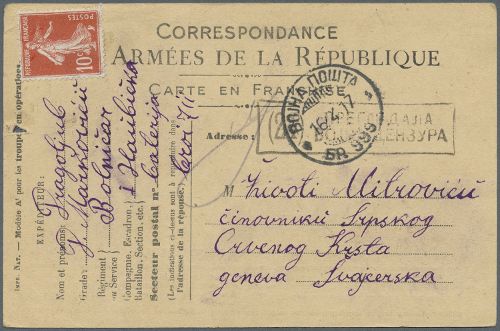 CORRESPONDANCE
ARMÉES DE LA RÉPUBLIQUE
CARTE EN FRANCHISE
POSTES
RÉPUBLIQUE FRANÇAISE
10c
ВОЈНА ПОШТА
16.2.17
БР. 999
ПРЕГЛЕДАЛА
ЦЕНЗУРА
Adresse :
M Životi Mitroviću
činovniku Srpskog
Crvenog Krsta
geneva Švajcerska
Modèle A1 pour les troupes en opérations.
EXPÉDITEUR :
Nom et prénoms : Dragoljub
Grade : J. Marković
Régiment ou Service : Bolničar
Compagnie, Escadron, Bataillon, Section, etc. I Haubička
Secteur postal n° baterija
(Les indications ci-dessus sont à reproduire dans l'adresse de la réponse.)